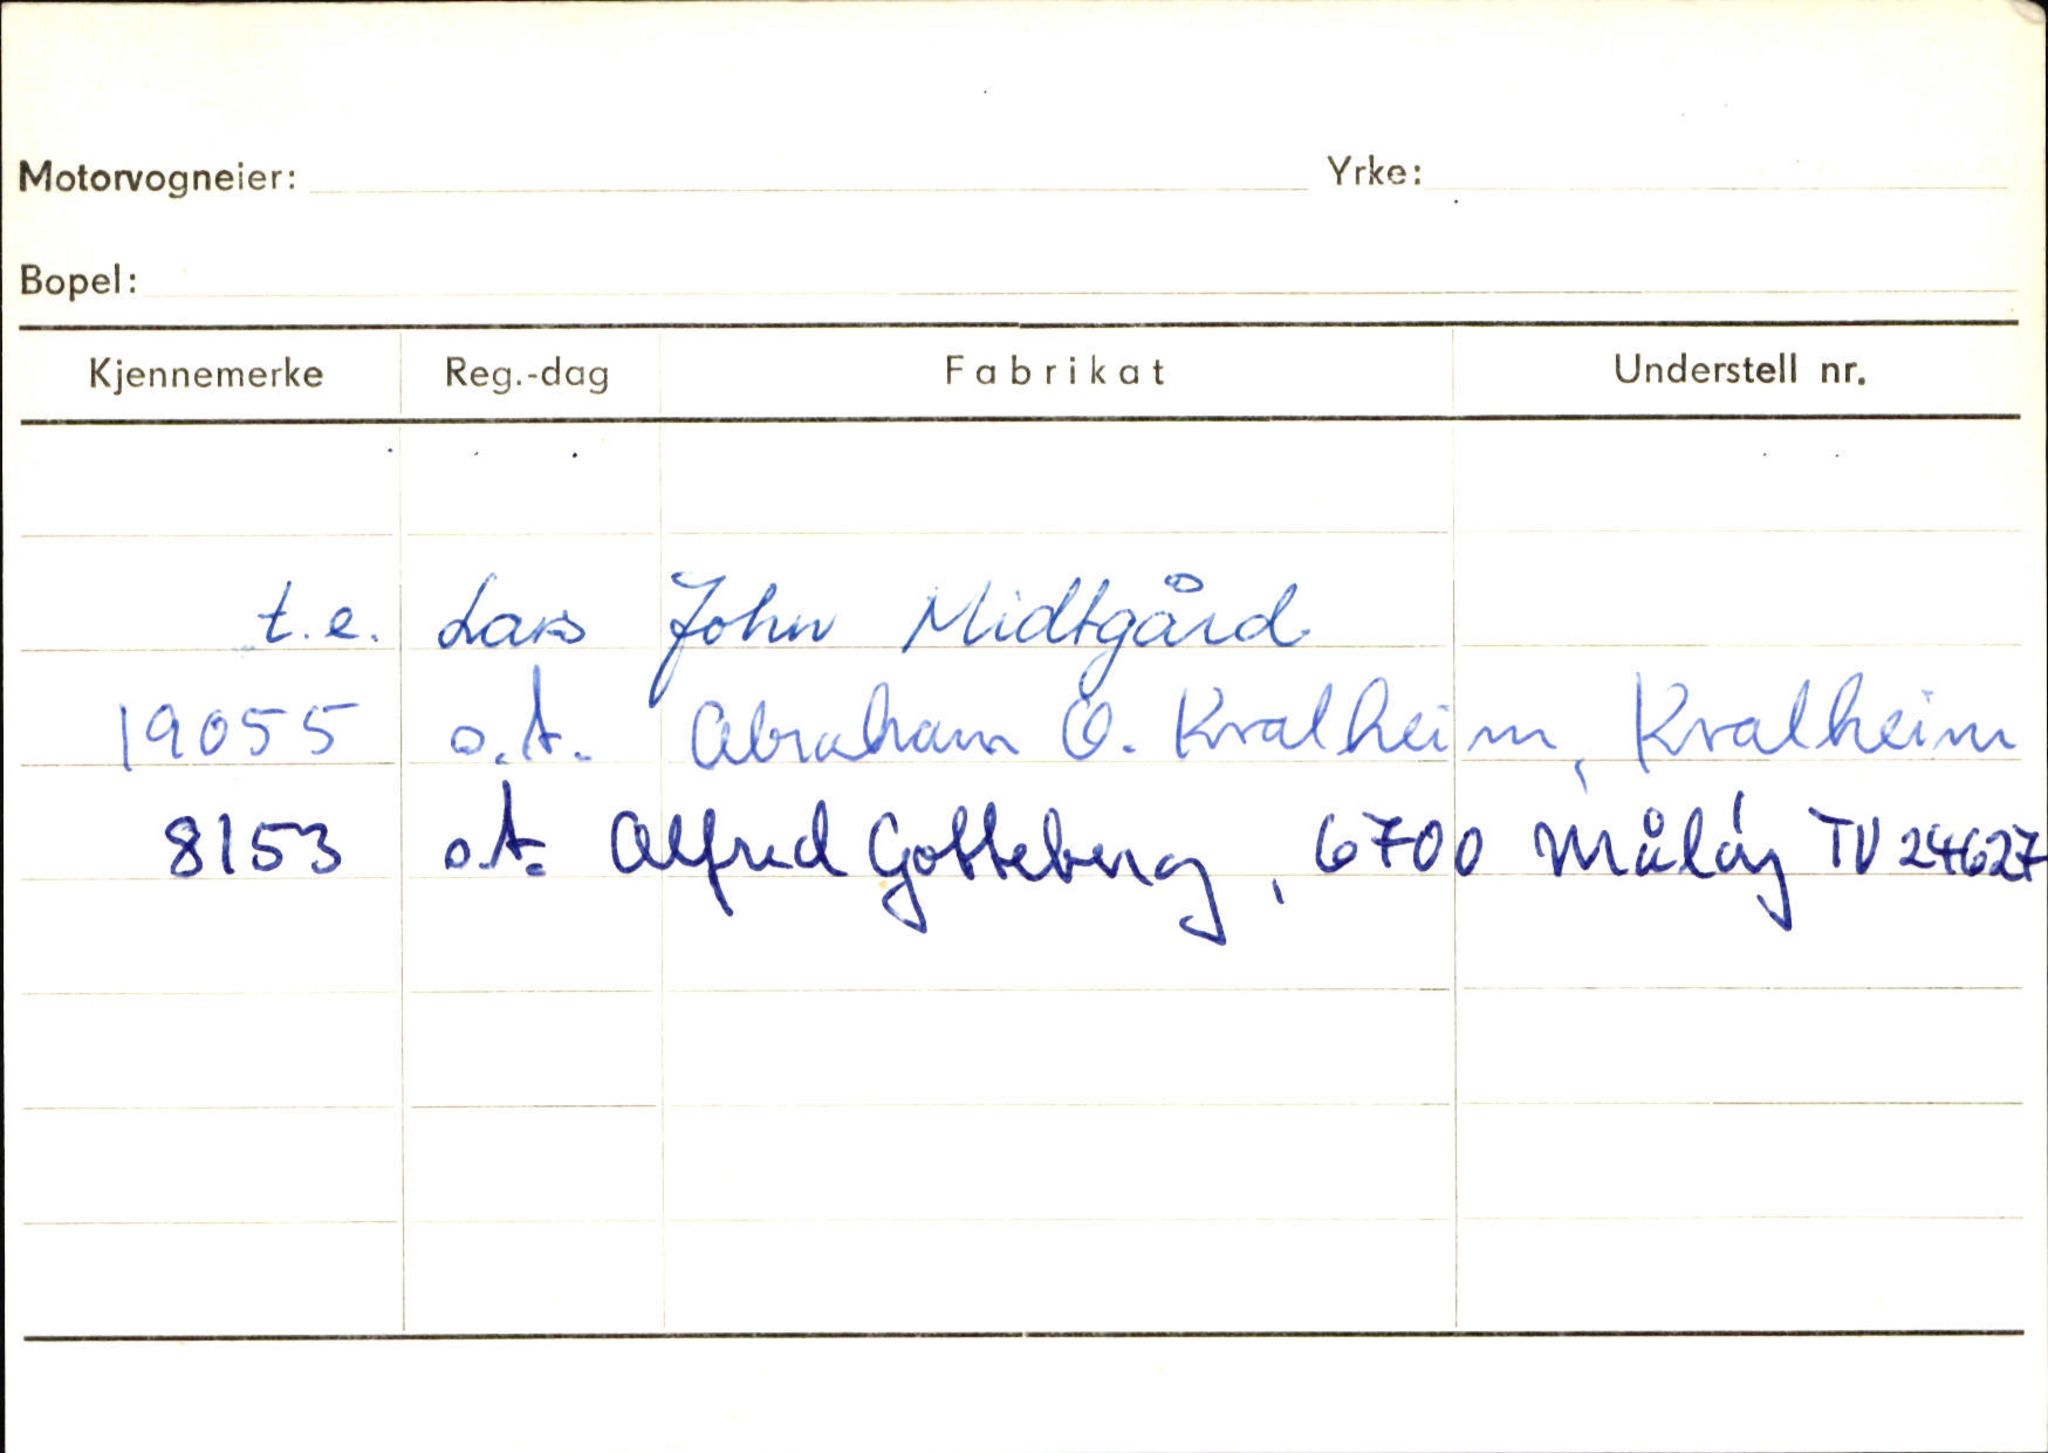 Motorvogneier: Yrke:
Bopel:
Kjennemerke Reg.-dag Fabrikat Understell nr.
t.e. Lars John Midtgård
19055 o.t. Abraham O. Kvalheim, Kvalheim
8153 o.t. Alfred Gotteberg, 6700 Måløy TV 24627